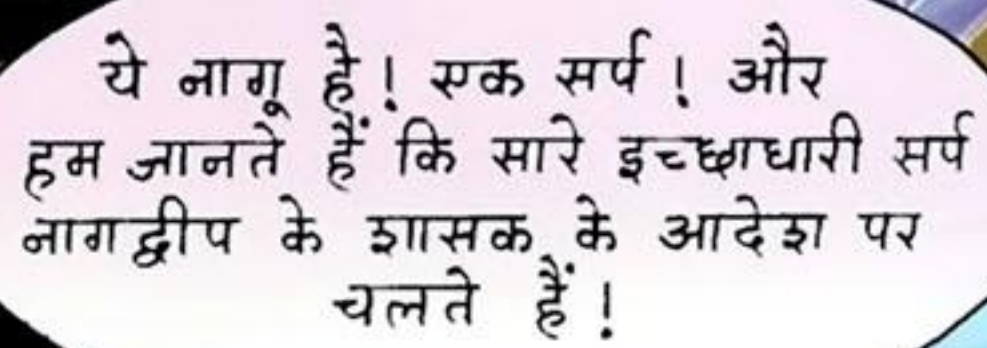 ये नागू है! एक सर्प! और
हम जानते हैं कि सारे इच्छाधारी सर्प
नागद्वीप के शासक के आदेश पर
चलते हैं!